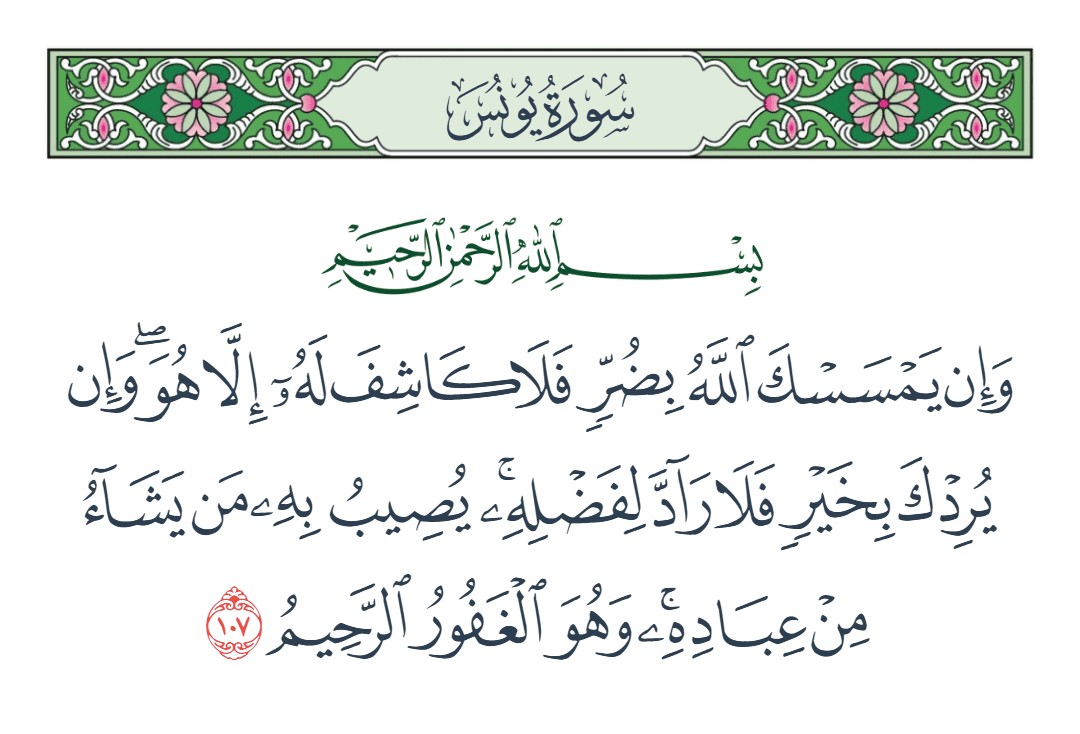 سُورَةُ يُونُسَ
بِسْمِ ٱللَّهِ ٱلرَّحْمَٰنِ ٱلرَّحِيمِ
وَإِن يَمْسَسْكَ ٱللَّهُ بِضُرٍّ فَلَا كَاشِفَ لَهُۥٓ إِلَّا هُوَۖ وَإِن
يُرِدْكَ بِخَيْرٍ فَلَا رَآدَّ لِفَضْلِهِۦۚ يُصِيبُ بِهِۦ مَن يَشَآءُ
مِنْ عِبَادِهِۦۚ وَهُوَ ٱلْغَفُورُ ٱلرَّحِيمُ ١٠٧